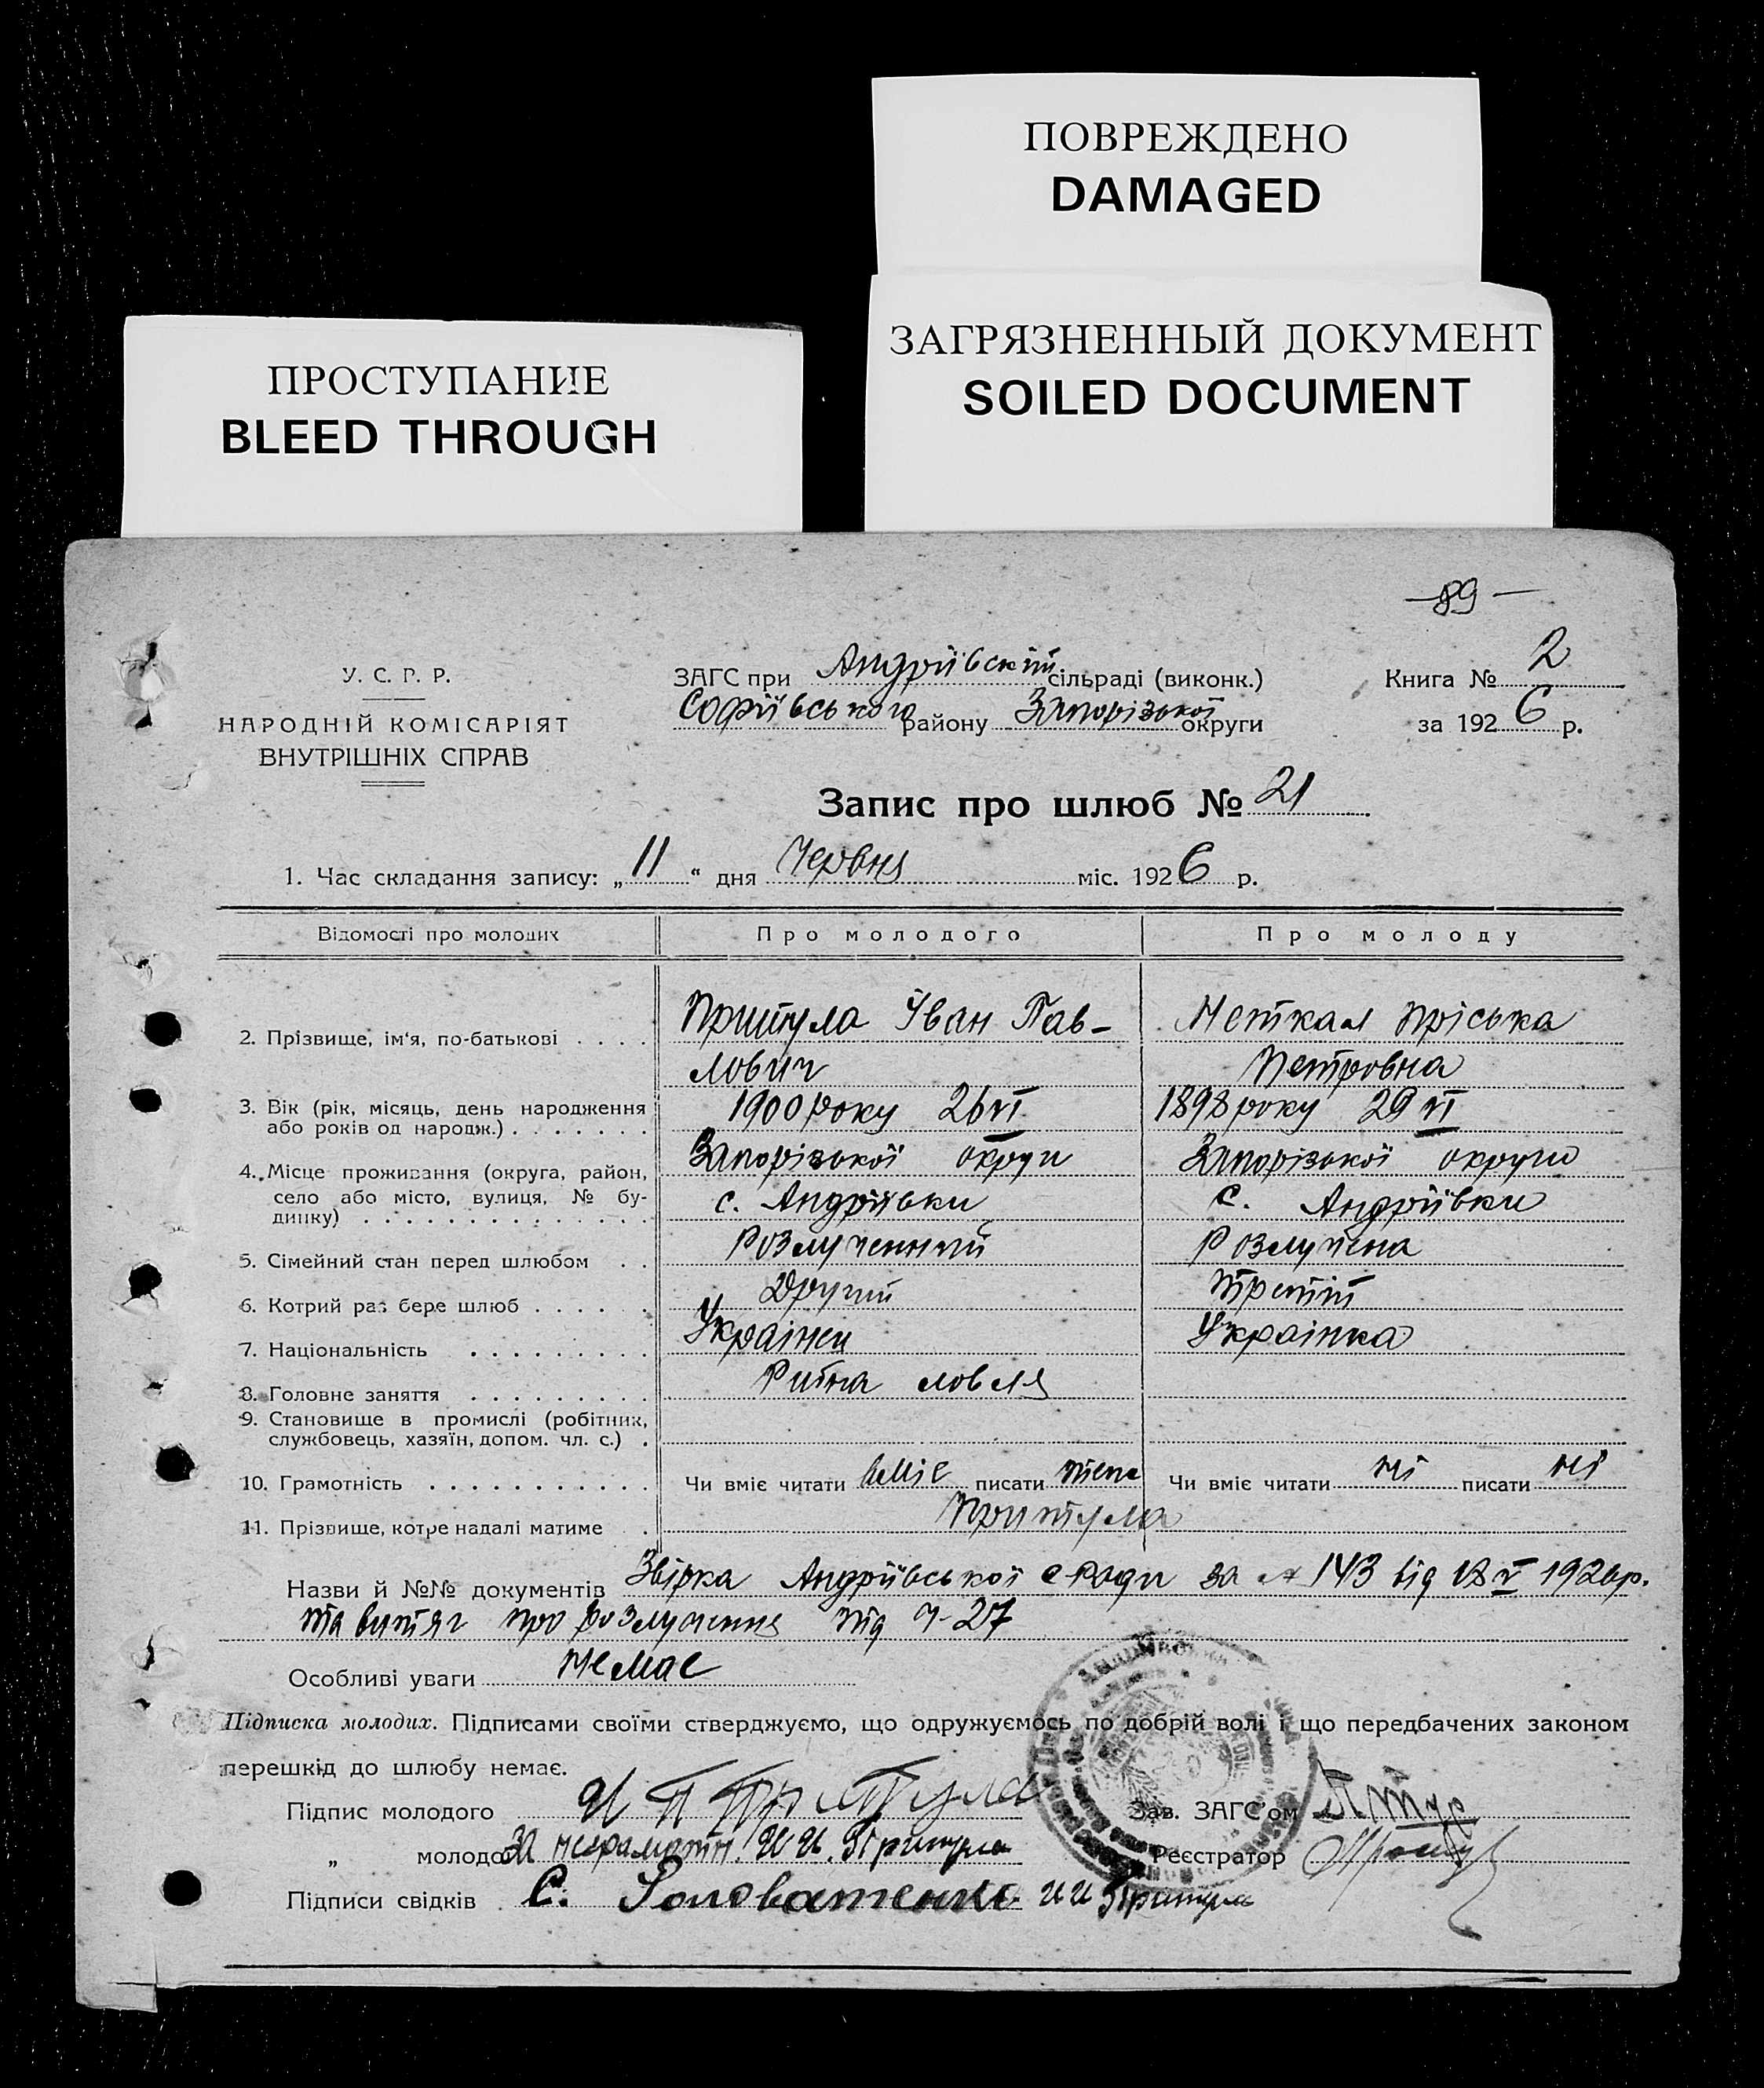 ПОВРЕЖДЕНО
DAMAGED
ЗАГРЯЗНЕННЫЙ ДОКУМЕНТ
SOILED DOCUMENT
ПРОСТУПАНИЕ
BLEED THROUGH
89
У. С. Р. Р.
НАРОДНІЙ КОМІСАРІЯТ
ВНУТРІШНІХ СПРАВ
ЗАГС при Андріївській сільраді (виконк.)
Софіївського району Запорізької округи
Книга № 2
за 1926 р.
Запис про шлюб № 21
1. Час складання запису: „11“ дня Червня міс. 1926 р.
Відомості про молодих
Про молодого
Про молоду
2. Прізвище, ім'я, по-батькові . . . .
Притула Іван Пав-
лович
Меткая Пріська
Петровна
3. Вік (рік, місяць, день народження
або років од народж.) . . . . . . .
1900 року 26 VI
1898 року 29 VI
4. Місце проживання (округа, район,
село або місто, вулиця, № бу-
динку) . . . . . . . . . . . . . .
Запорізької округи
с. Андріівки
Запорізької округи
с. Андріївки
5. Сімейний стан перед шлюбом . .
Розлученний
Розлучена
6. Котрий раз бере шлюб . . . . .
Другий
Третій
7. Національність . . . . . . . . .
Українец
Украінка
8. Головне заняття . . . . . . . . .
Рибна ловля
9. Становище в промислі (робітник,
службовець, хазяїн, допом. чл. с.) .
10. Грамотність . . . . . . . . . . .
Чи вміє читати вміє писати теж
Чи вміє читати ні писати ні
11. Прізвище, котре надалі матиме .
Притула
Назви й №№ документів Звірка Андріївської с Ради за № 143 від 18 V 1926 р.
та витяг про розлучення під Ч-27
Особливі уваги немає
Підписка молодих. Підписами своїми стверджуємо, що одружуємось по добрій волі і що передбачених законом
перешкід до шлюбу немає.
Підпис молодого И П Притула
Зав. ЗАГС'ом
„ молодої За неграмотн. И И. Притула
Реєстратор
Підписи свідків . С. Головатенко И И Притула